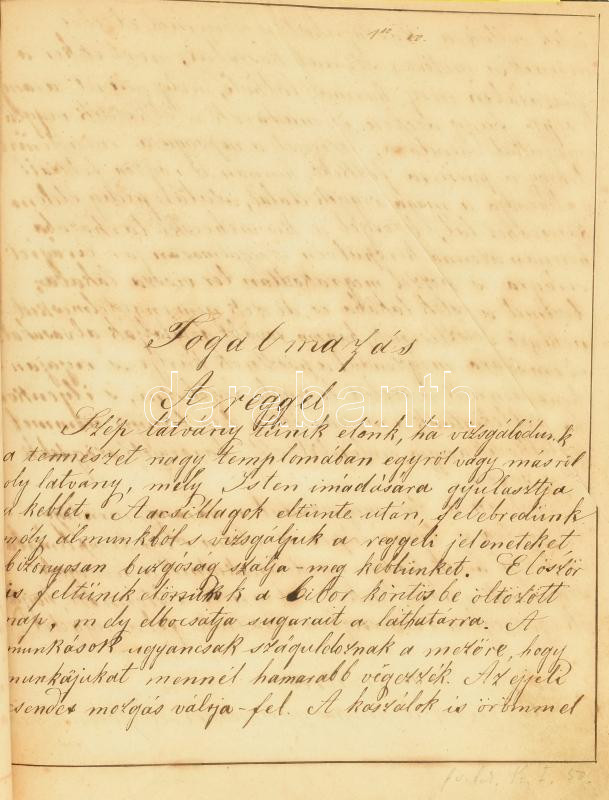 Fogalmazás
A reggel
Szép látvány tűnik elönk, ha vizsgálódunk
a természet nagy templomában egyről vagy másról
oly latvány, mely Isten imádására gyulasztja
a keblet. A csillagok eltünte után, felebredünk
mély álmunkból s vizsgáljuk a reggeli jeleneteket,
bizonyosan buzgóság szálja-meg keblünket. Elöször
is feltünik a bibor köntösbe öltözött
nap, mely elbocsátja sugarait a láthatárra. A
munkások ugyancsak száguldoznak a mezőre, hogy
munkájukat mennél hamarabb végezzék. Az éjjeli
csendet mozgás váltja-fel. A kaszálok is örömmel
darabanth